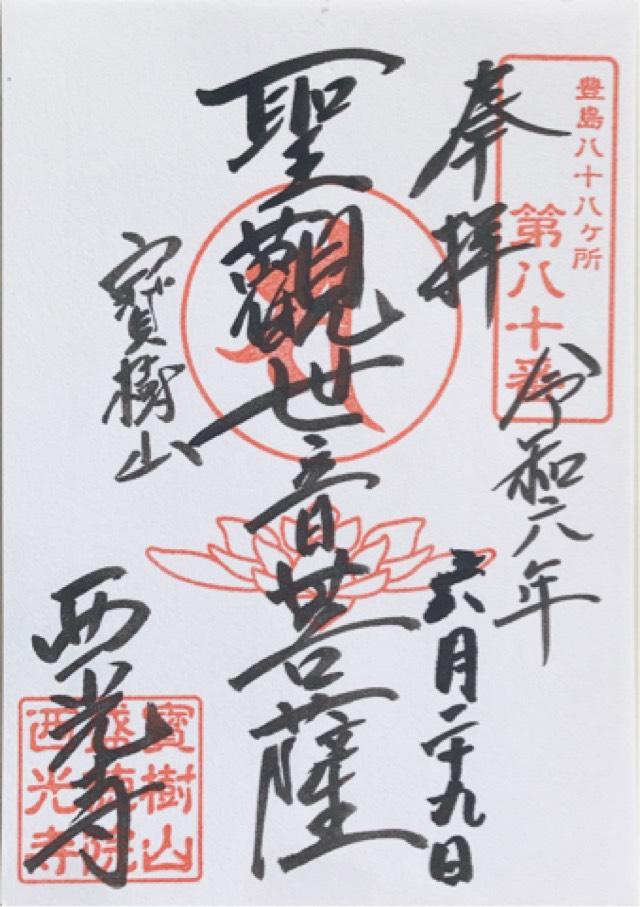 豊島八十八ケ所
第八十番
奉拝
令和六年
六月二十九日
聖觀世音菩薩
寳樹山
西光寺
寳樹山
盛徳院
西光寺